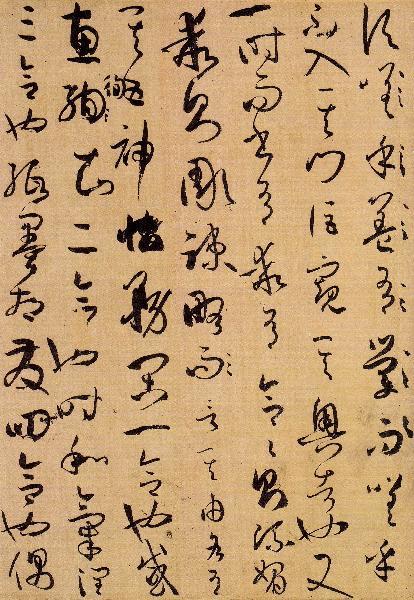 嗟乎
不入其門詎窺其奧者也又
一時而書有乖有合合則流媚
乖則彫疎略言其由各有
其五神怡務閑一合也感
惠徇知二合也時和氣潤
三合也紙墨相發四合也偶